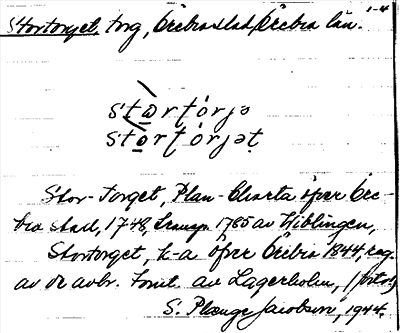 1-4
Stortorget, torg, Örebro stad, Örebro län.
stɷrtórjə
stɷrtórjət
Stor-Torget, Plan-Charta öfver Öre-
bro stad, 1748, transp. 1785 av Wiblingen,
Stortorget, k-a öfver Örebro 1844, reg.
av de avbr. tomt. av Lagerholm,
S. Plænge Jacobson, 1944.